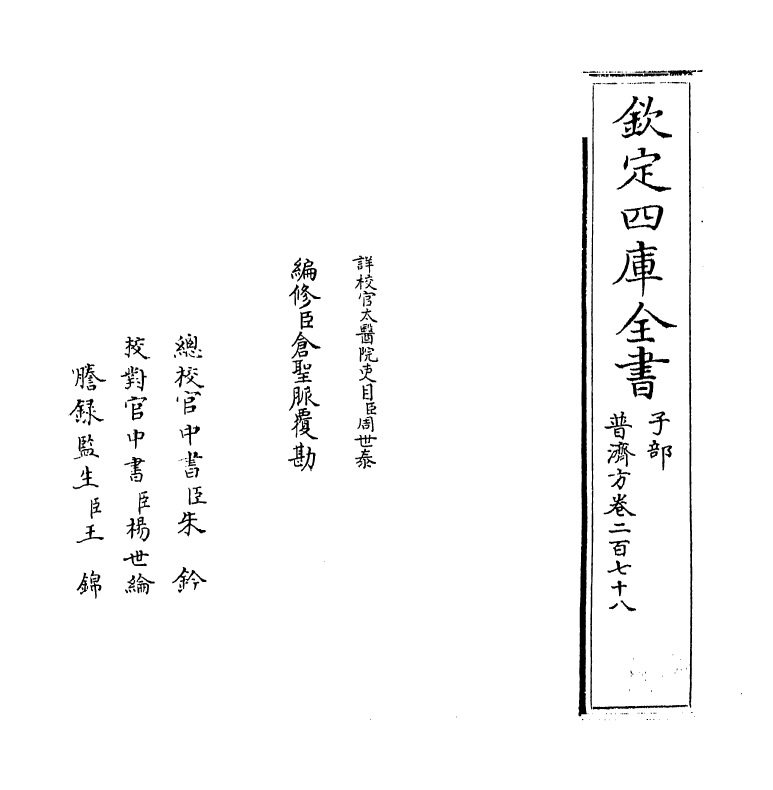 欽定四庫全書
子部
普濟方卷二百七十八
詳校官太醫院吏目臣周世泰
編修臣倉聖脈覆勘
總校官中書臣朱鈐
校對官中書臣楊世綸
謄録監生臣王錦